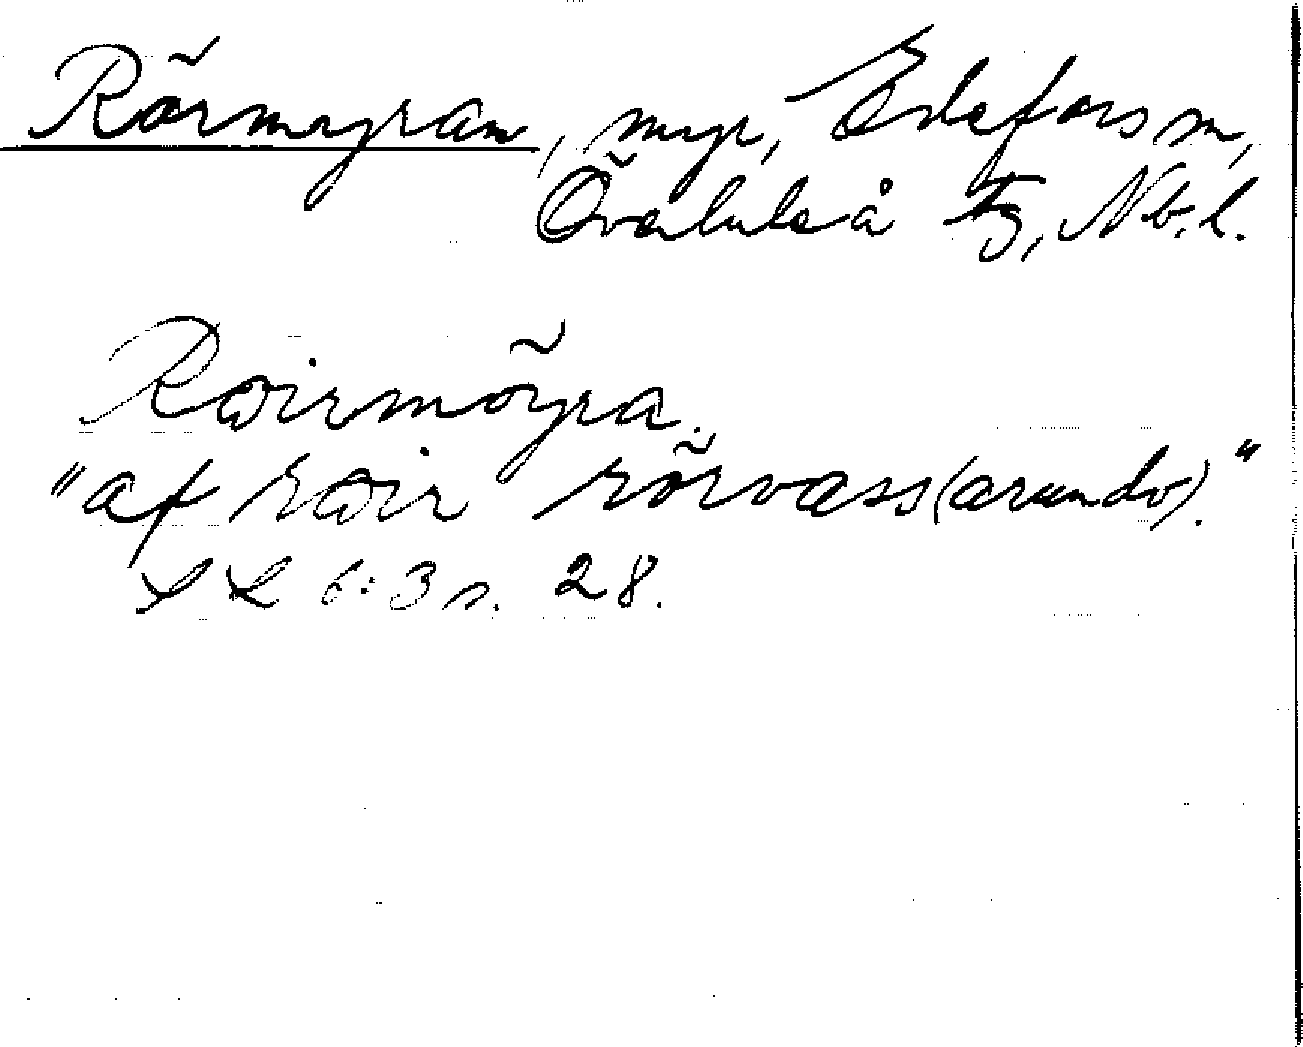 Rörmyran, myr, Edefors sn,
Överluleå tg, Nb. l.
Rœirmöyra.
"af rœir rörvass (arundo)."
SL 6:3 s. 28.